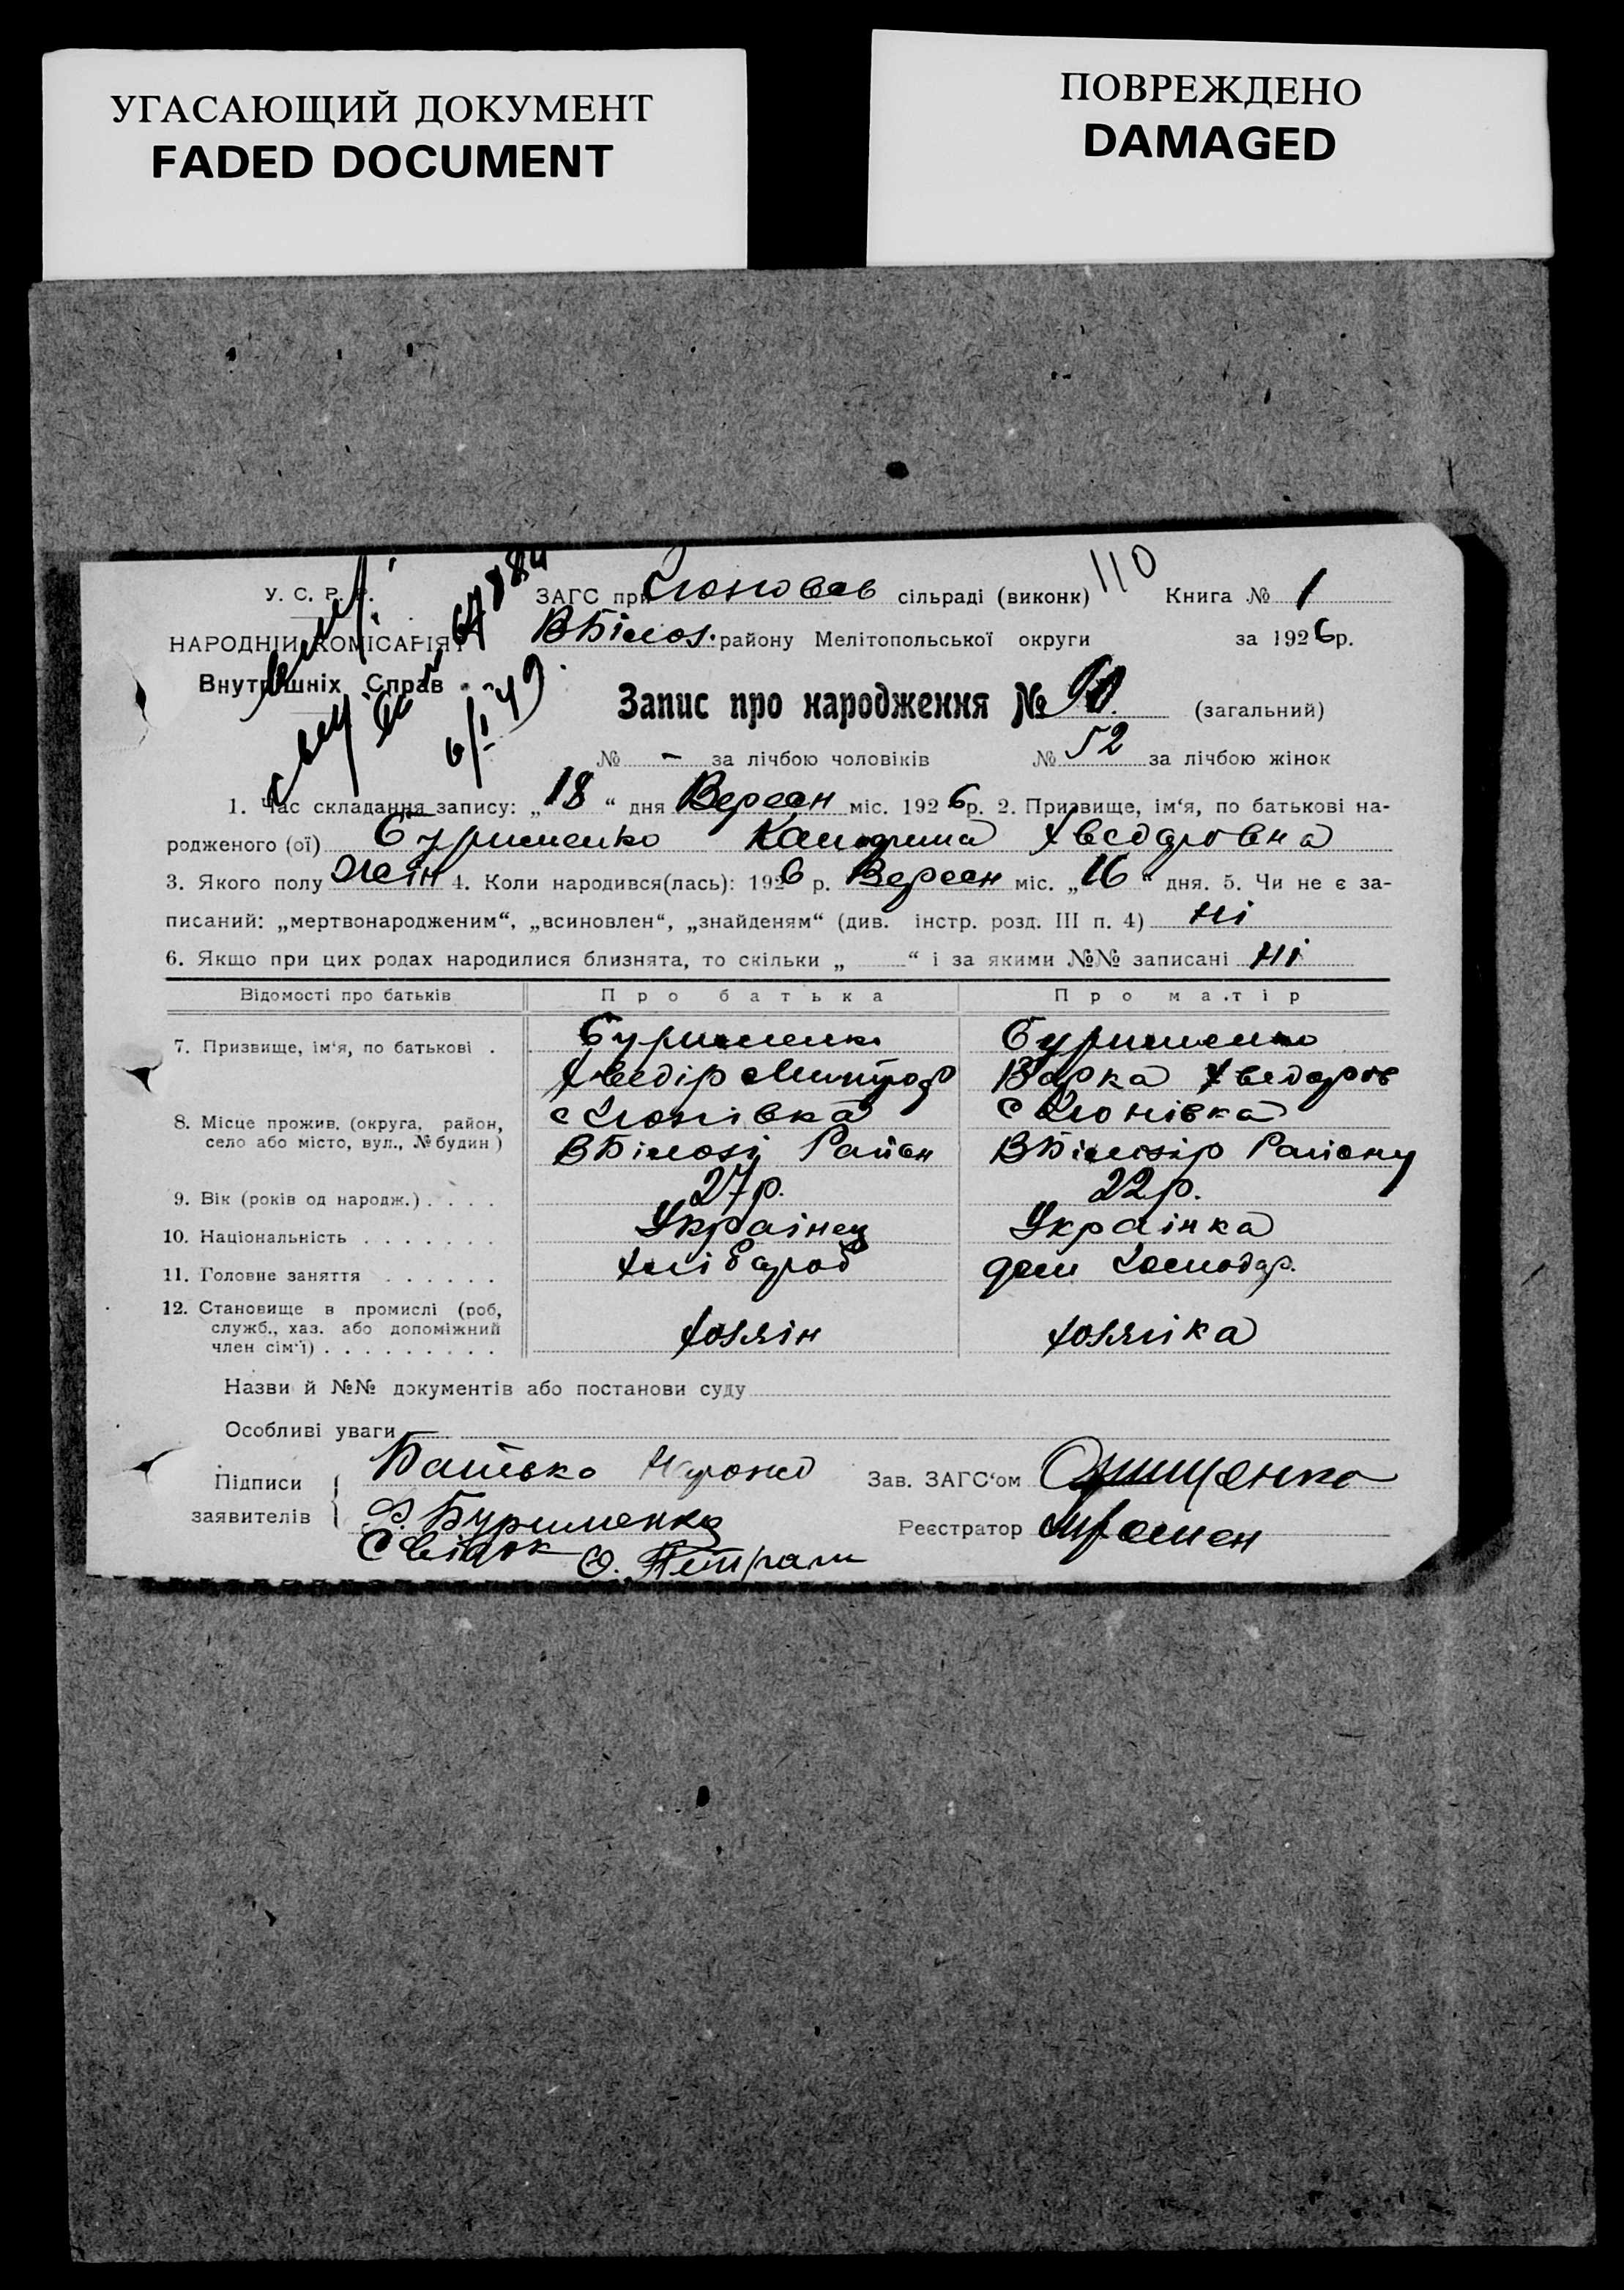 УГАСАЮЩИЙ ДОКУМЕНТ
FADED DOCUMENT
ПОВРЕЖДЕНО
DAMAGED
110
У. С. Р. Р.
ЗАГС при сільраді (виконк)
Книга № 1
НАРОДНІЙ КОМІСАРІЯТ
району Мелітопольської округи
за 1926р.
Внутрішніх Справ
Запис про народження № 90 (загальний)
№ - за лічбою чоловіків № 52 за лічбою жінок
1. Час складання запису: „18“ дня Вересн міс. 1926р. 2. Призвище, ім‘я, по батькові на-
родженого (ої) Буріменко Хведоровна
3. Якого полу жін 4. Коли народився(лась): 1926 р. Вересн міс. „16“ дня. 5. Чи не є за-
писаний: „мертвонародженим“, „всиновлен“, „знайденям“ (див. інстр. розд. III п. 4) ні
6. Якщо при цих родах народилися близнята, то скільки „ “ і за якими №№ записані ні
Відомості про батьків Про батька Про матір
7. Призвище, ім‘я, по батькові . Буріменко Буріменко
Хведір Варка Хведоров
8. Місце прожив. (округа, район,
село або місто, вул., № будин)
ВБілозір Району
9. Вік (років од народж.) . . . . 27р. 22р.
10. Національність . . . . . . . Українец Українка
11. Головне заняття . . . . . . хлібороб дом господар.
12. Становище в промислі (роб,
служб., хаз. або допоміжний
член сім‘ї) . . . . . . . . . хозяін хозяйка
Назви й №№ документів або постанови суду
Особливі уваги
Підписи
заявителів
Батько
Ф. Буріменко
Свідок
Зав. ЗАГС‘ом Онищенко
Реєстратор